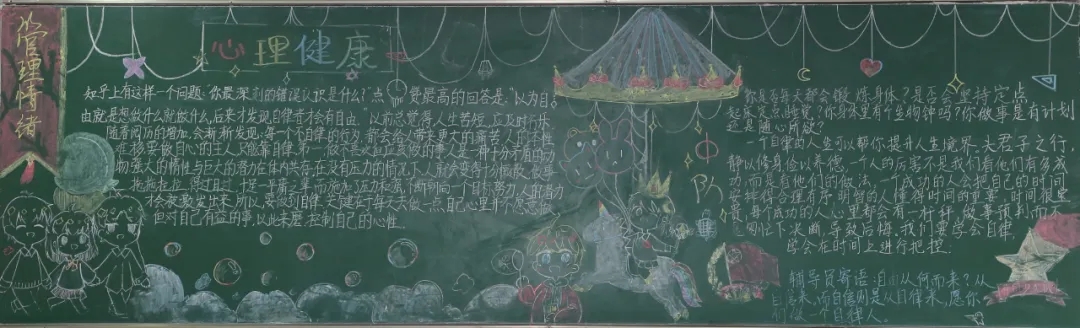 管理情绪
心理健康
知乎上有这样一个问题:你最深刻的错误认识是什么?"点赞最高的回答是"以为自
由就是想做什么就做什么,后来才发现自律者才会有自由。"以前总觉得人生苦短,应及时行乐
随着阅历的增加,会渐渐发现:每一个不自律的行为,都会给人带来更大的痛苦。人的本性
做自己的主人
物
强大的惰性与巨大的潜力在体内共存,在没有压力的情况下人就会变得十分懒散,做事
拖拖拉拉
才会被激发出来,所以,要做到自律,关键在于每天去做一点自己心里并不愿意
但对自己有益的事,以此来磨控制自己的心性。
你是否每天都会锻炼身体?是否会坚持定点
起来,定点睡觉?你身体里有个生物钟吗?你做事是有计划
还是随心所欲?
一个自律的人生可以帮你提升人生境界,夫君子之行,
静以修身,俭以养德,一个人的厉害不是我们看他们有多成
功,而是看他们的做法,一个成功的人会把自己的时间
安排得合理有序,明智的人懂得时间的重要,时间很宝
贵,每个成功的人心里都会有一杆秤,做事预判而
匆忙下决断,导致后悔,我们要学会自律
学会在时间上进行把控。
辅导员寄语:自由从何而来?从
自信来,而自信则是从自律来,愿你
做一个自律人。